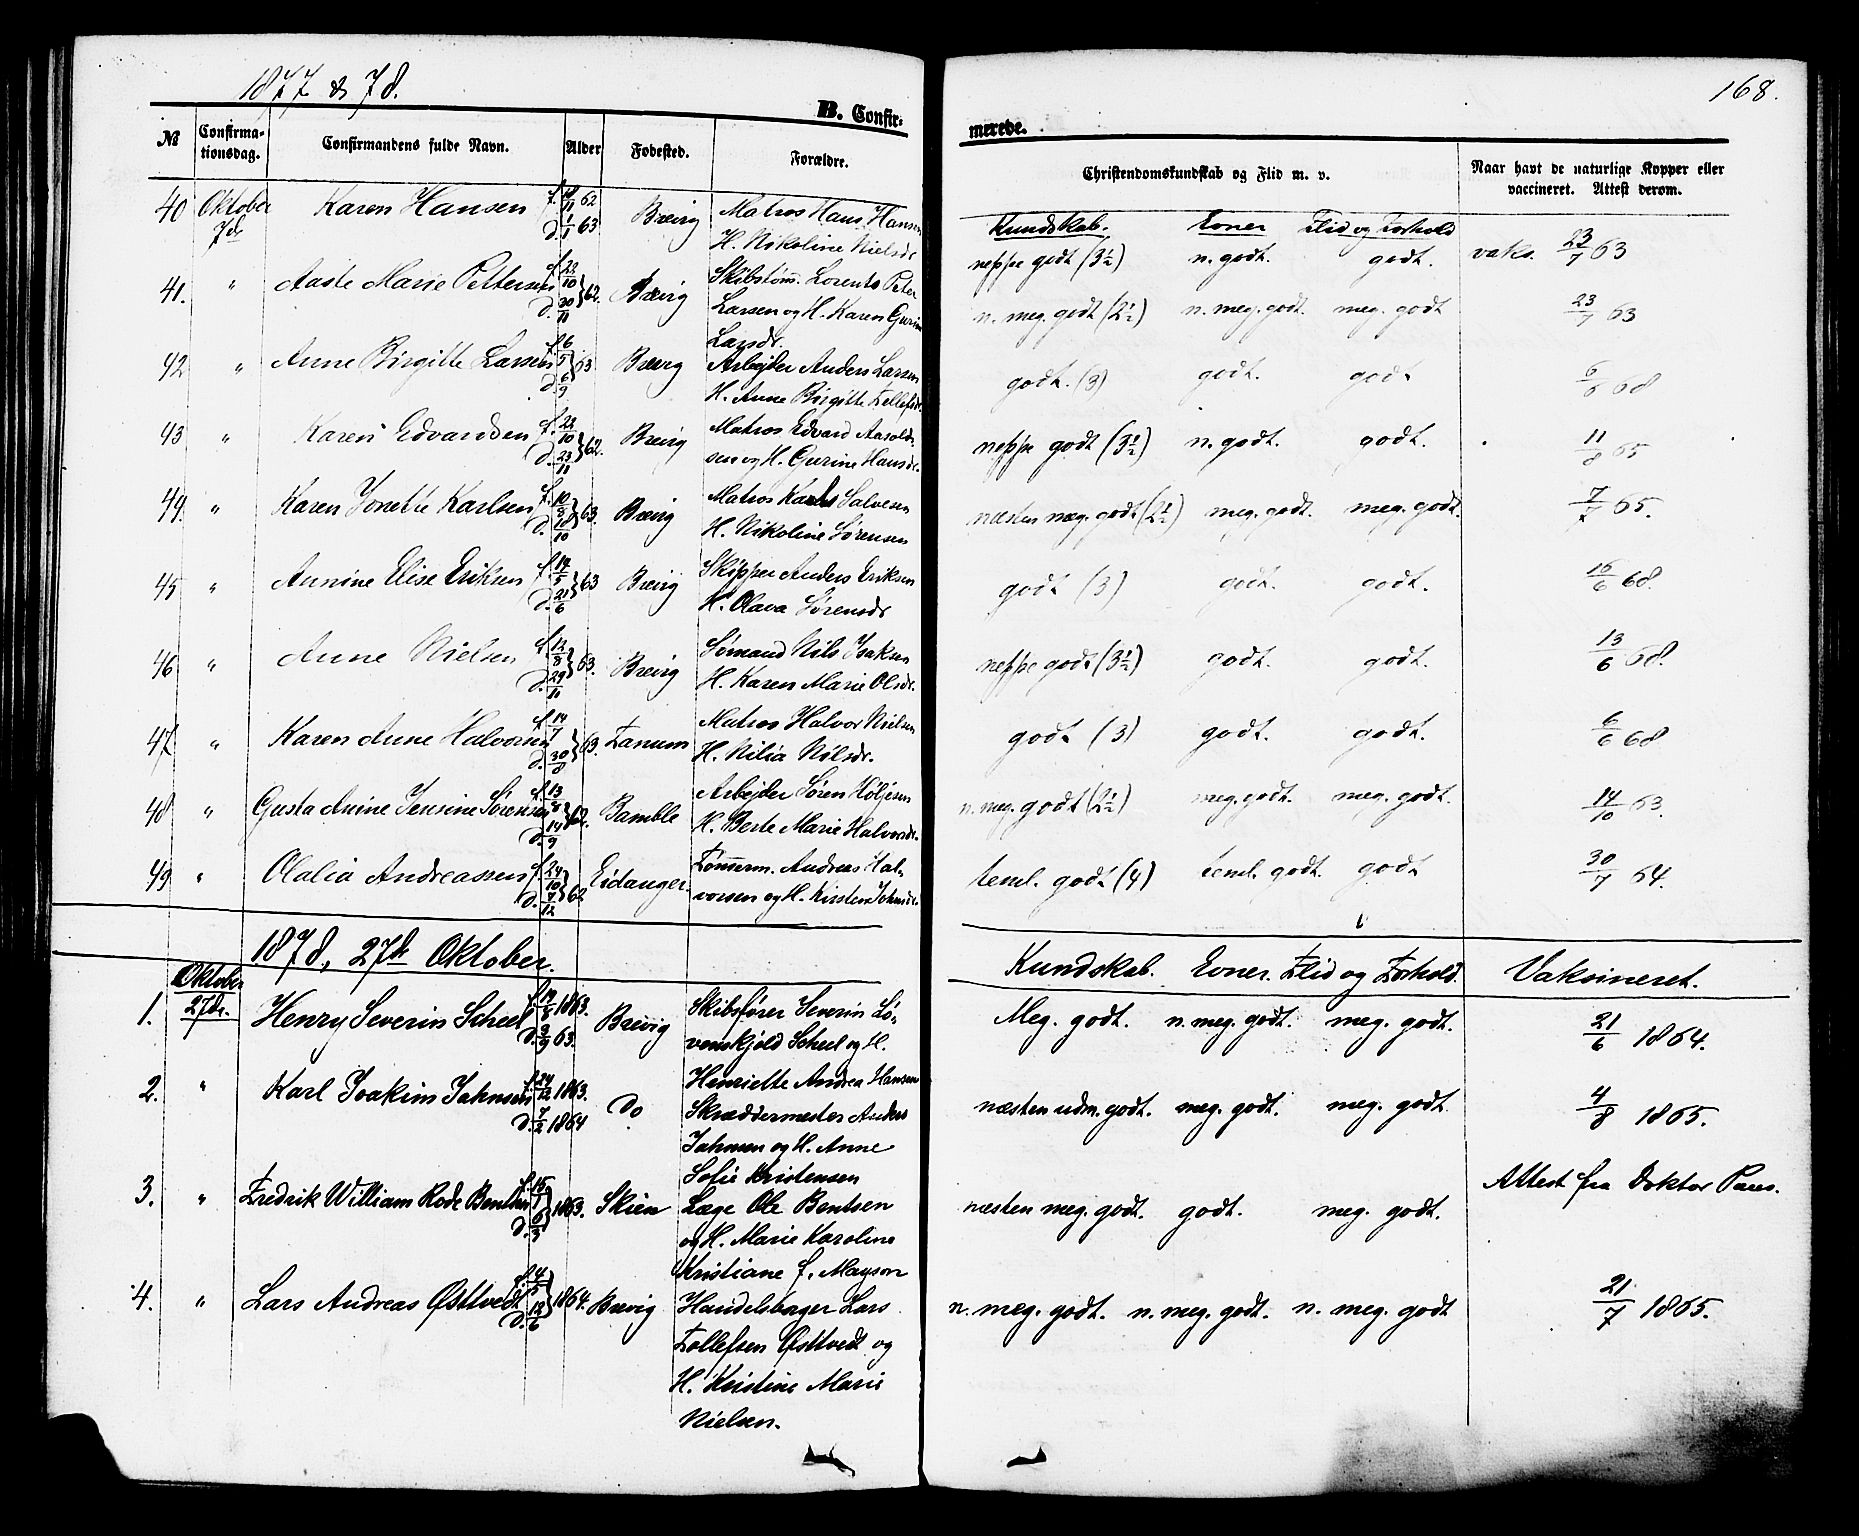 1877 & 78.
168.
B. Confir-
merede.
№ Confirma-tionsdag. Confirmandens fulde Navn. Alder Fødested. Forældre. Christendomskundskab og Flid m. v. Naar havt de naturlige Kopper eller vaccineret. Attest derom.
Kundskab. Evner Flid og Forhold
40 Oktober 7de Karen Hansen f. 62 d. 1/1 63 Brevig Matros Hans Hansen
H. Nikoline Nielsdr neppe godt (3½) n. godt. godt. vaks. 23/7 63
41. " Aaste Marie Pettersen f. 22/10 d. 30/11 62. Brevig Skibstømm. Lorents Peter
Larsen og H. Karen Gurine
Larsdr. n. meg. godt (2½) n. meg. godt. meg. godt 23/7 63
42 " Anne Birgitte Larsen f. 6/5 d. 6/9 63 Brevig Arbejder Anders Larsen
H. Anne Birgitte Tellefsdr. godt. (3) godt. godt 6/6 68
43 " Karen Edvardsen f. 22/10 d. 23/11 62. Brevig Matros Edvard Aasolds-
sen og H. Gurine Hansdr. neppe godt (3½) n. godt. godt. 11/8 65
44. " Karen Jonette Karlsen f. 10/8 d. 18/10 63. Brevig Matros Karls Salvesen
H. Nikoline Sørensen næsten meg. godt (2½) meg. godt. meg. godt. 7/7 65.
45 " Annine Elise Eriksen f. 14/5 d. 21/6 63 Brevig Skipper Anders Eriksen
H. Olava Sørensdr godt (3) godt. godt. 16/6 68.
46 " Anne Nielsen f. 12/8 d. 29/10 63. Brevig Sømand Nils Isaksen
H. Karen Marie Olsdr. neppe godt (3½) godt. godt. 13/6 68.
47 " Karen Anne Halvorsen f. 14/7 d. 30/8 63. Tanum Matros Halvor Nielsen
H. Nilia Nilsdr. godt (3) godt. godt. 6/6 68
48 " Gusta Anine Jensine Sørensen f. 13/8 d. 14/9 62. Bamble Arbejder Søren Høljesen
H. Berte Marie Halvorsdr. n. meg. godt (2½) meg. godt. meg. godt. 14/10 63.
49 " Olalia Andreassen f. 24/10 d. 7/12 62 Eidanger. Tømmerm. Andreas Hal-
vorsen og H. Kirsten Johnsdr. teml. godt (4) teml. godt. godt 30/7 64.
1878, 27de Oktober.
Kundskab. Evner. Flid og Forhold. Vaksineret.
1. Oktober 27de. Henry Severin Scheel f. 14/6 1863. d. 3/9 63. Brevig Skibsfører Severin Lö-
venskjold Scheel og H.
Henriette Andrea Hansen Meg. godt. n. meg. godt. meg. godt. 21/6 1864.
2. " Karl Joakim Jahnsen f. 24/12 1863. d. 7/2 1864 Do Skræddermester Anders
Jahnsen og H. Anne
Sofie Kristensen næsten udm. godt. meg. godt. meg. godt 4/8 1865.
3. " Fredrik William Rode Bentsen f. 15/1 d. 6/3 1863. Skien Læge Ole Bentsen
og H. Marie Karoline
Kristiane f. Mayson næsten meg. godt. godt. meg. godt. Attest fra Doktor Paus.
4. " Lars Andreas Østtvedt f. d. 12/6 1864. Brevig Handelsborger Lars
Tollefsen Østtvedt og
H. Kristine Marie
Nielsen. n. meg. godt. n. meg. godt. n. meg. godt 21/7 1865.